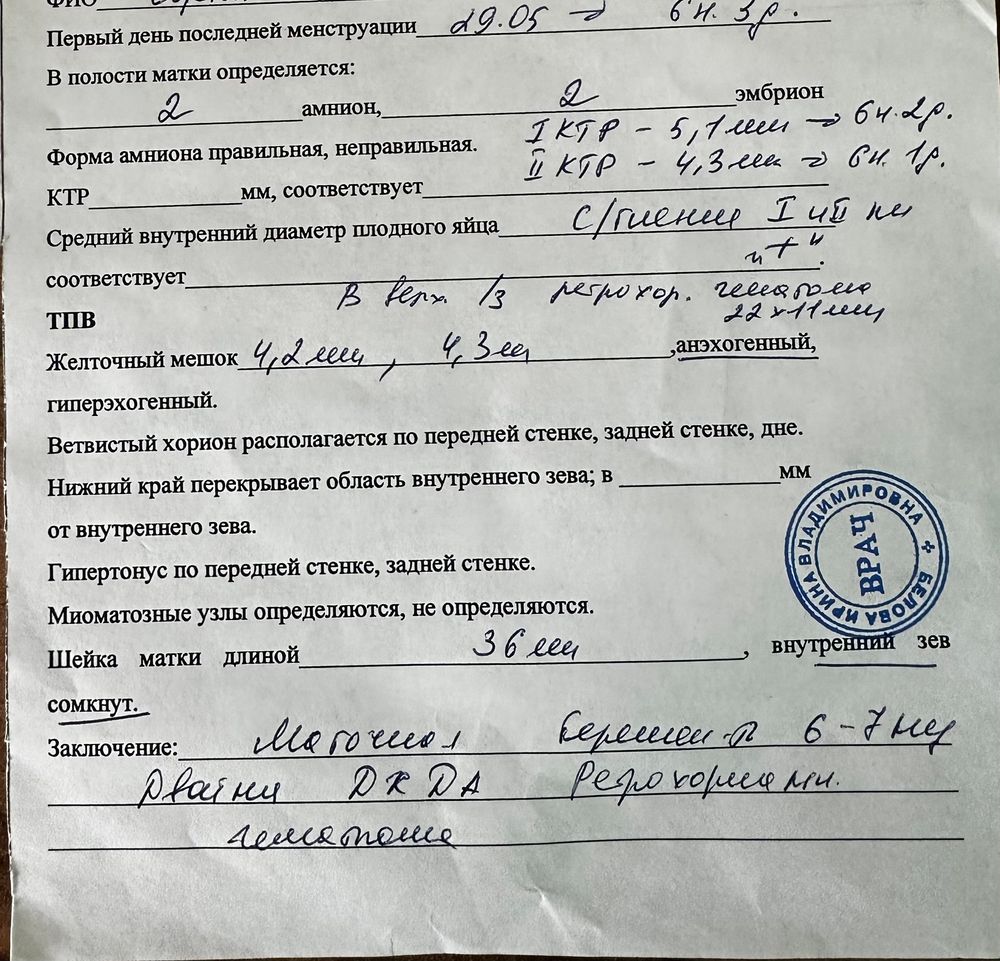 ФИО
Первый день последней менструации 29.05 → 6 н. 3 д.
В полости матки определяется:
2 амнион, 2 эмбрион
I КТР - 5,1 мм → 6 н. 2 д.
Форма амниона правильная, неправильная.
II КТР - 4,3 мм → 6 н. 1 д.
КТР мм, соответствует
Средний внутренний диаметр плодного яйца С/биение I и II пл
соответствует "+".
В верх. /3 ретрохор. гематома
22х11 мм
ТПВ
Желточный мешок 4,2 мм, 4,3 мм, анэхогенный,
гиперэхогенный.
Ветвистый хорион располагается по передней стенке, задней стенке, дне.
Нижний край перекрывает область внутреннего зева; в мм
от внутреннего зева.
Гипертонус по передней стенке, задней стенке.
Миоматозные узлы определяются, не определяются.
Шейка матки длиной 36 мм, внутренний зев
сомкнут.
БЕЛОВА ИРИНА ВЛАДИМИРОВНА
ВРАЧ
Заключение: Маточная беремен-ть 6-7 нед
Двойня ДХ ДА Ретрохориальн.
гематома